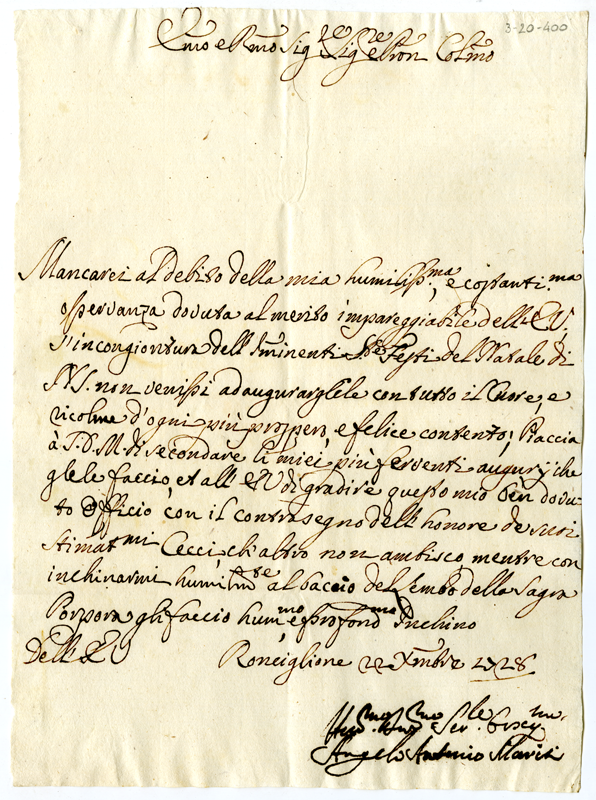 3-20-400
Emo e Rmo Sig.re Sig.re e Pron Colmo
Mancarei al debito della mia humiliss.ma, e costanti.ma
osservanza dovuta al merito impareggiabile dell'E.V.
s'incongiontura dell'Iminenti S.te Festi del Natale di
N.S. non venissi ad augurarglele con tutto il Cuore, e
ricolme d'ogni più prospero, e felice contento; Piaccia
à S.D.M. di secondare li miei più ferventi augurÿ che
glele faccio, et all'E.V. di gradire questo mio ben dovu-
to officio con il contrasegno dell'honore de suoi
stimat.mi Cecci, ch'altro non ambisco, mentre con
inchinarmi humilm.te al baccio del Lembo della Sagra
Porpora gli faccio hum.mo, e profond.mo Inchino
Dell'E.V. Ronciglione 22 Xmbre 1728
Hum.mo Ser.le
Angelo Antonio